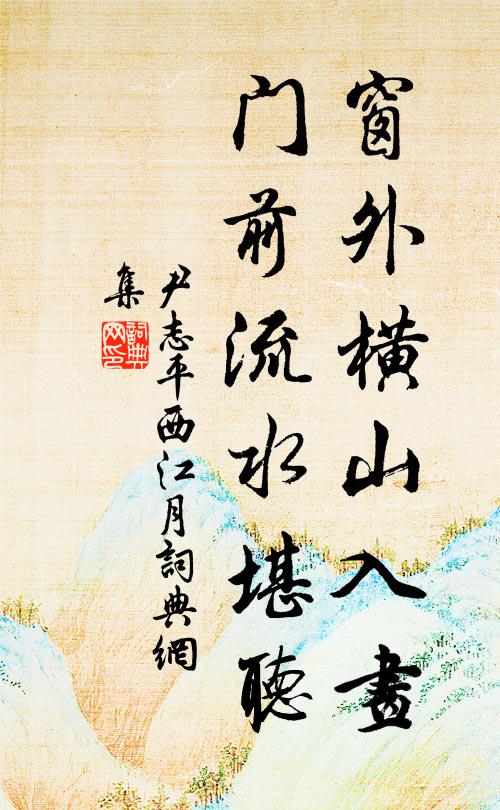 窗外橫山入畫
门前流水堪聽
尹志平西江月詞典網
集
詞典
网印